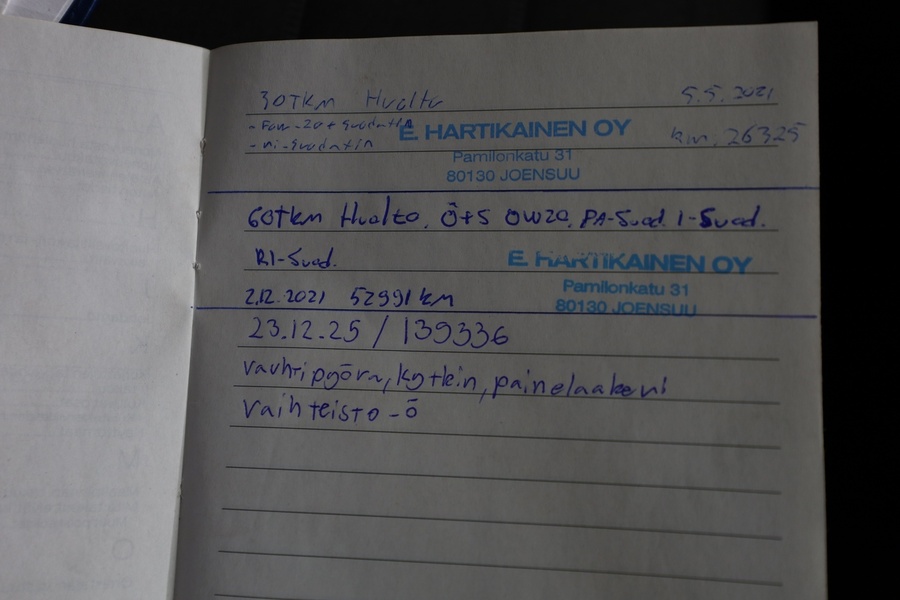 30TKM Huolto 5.5.2021
- 0W-20 + suodatin E. HARTIKAINEN OY km. 26325
- ri-suodatin Pamilonkatu 31
80130 JOENSUU
60Tkm Huolto, Ö+S 0W20, PA-Suod. I-Suod.
RI-Suod. E. HARTIKAINEN OY
Pamilonkatu 31
2.12.2021 52991 km
80130 JOENSUU
23.12.25 / 139336
vauhtipyörä, kytkin, painelaakeri
vaihteisto-ö